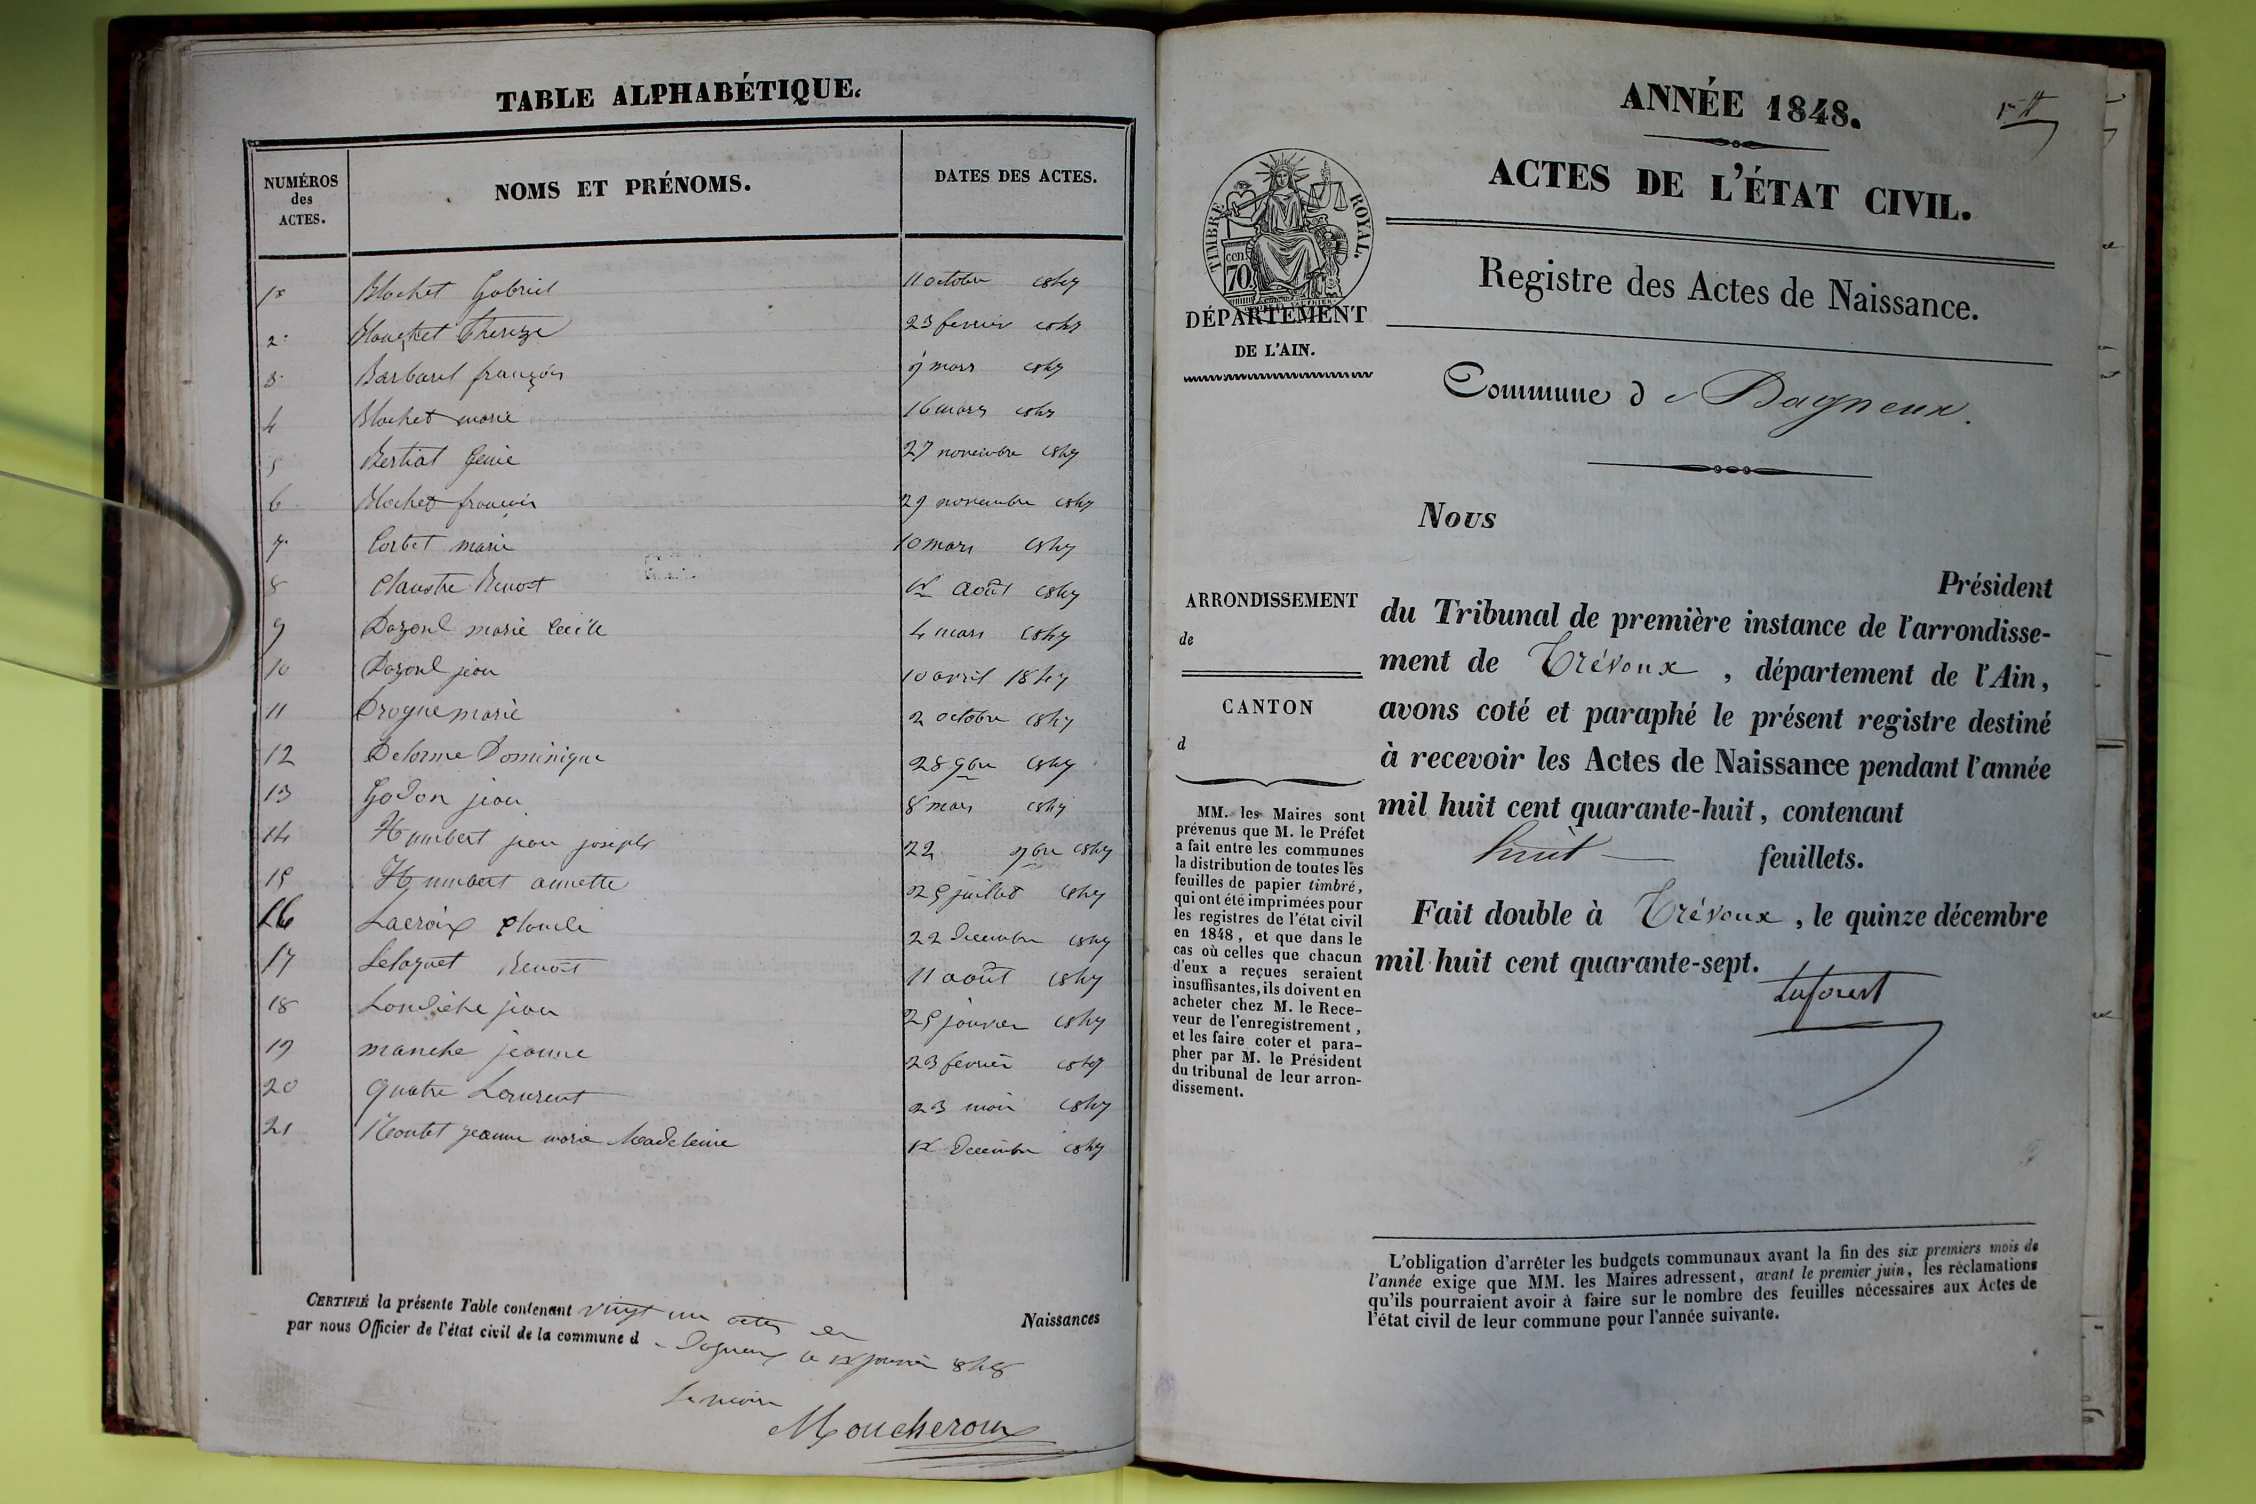 TABLE ALPHABÉTIQUE.
NUMÉROS des ACTES.
NOMS ET PRÉNOMS.
DATES DES ACTES.
1er Blachet Gabriel 11 octobre 1847
2 Blouchet Thereze 23 fevrier 1847
3 Barbarel françois 9 mars 1847
4 Blachet marie 16 mars 1847
5 Bertiat Genie 27 novembre 1847
6 Blachet françois 29 novembre 1847
7 Corbet marie 10 mars 1847
8 Claustre Benoit 12 août 1847
9 Dozonl marie Cecile 4 mars 1847
10 Dozonl jean 10 avril 1847
11 Drogue marie 2 octobre 1847
12 Delorme Dominique 28 9bre 1847
13 Godon jean 8 mars 1847
14 Humbert jean joseph 22 9bre 1847
15 Humbert annette 25 juillet 1847
16 Lacroix Claude 22 Decembre 1847
17 Benoit 11 août 1847
18 jean 25 janvier 1847
19 manche jeanne 23 fevrier 1847
20 Quatre Laurent 23 mai 1847
21 Montet jeanne marie Madeleine 12 Decembre 1847
CERTIFIÉ la présente Table contenant vingt un actes de Naissances
par nous Officier de l'état civil de la commune d Dagneux le janvier 1848
Le maire
Moucheroux
ANNÉE 1848.
ACTES DE L'ÉTAT CIVIL.
TIMBRE ROYAL
70
cen.
DÉPARTEMENT
DE L'AIN.
Registre des Actes de Naissance.
Commune de Dagneux.
Nous
Président
du Tribunal de première instance de l'arrondisse-
ment de Trévoux, département de l'Ain,
avons coté et paraphé le présent registre destiné
à recevoir les Actes de Naissance pendant l'année
mil huit cent quarante-huit, contenant
huit feuillets.
Fait double à Trévoux, le quinze décembre
mil huit cent quarante-sept.
ARRONDISSEMENT
de
CANTON
d
MM. les Maires sont
prévenus que M. le Préfet
a fait entre les communes
la distribution de toutes les
feuilles de papier timbré,
qui ont été imprimées pour
les registres de l'état civil
en 1848, et que dans le
cas où celles que chacun
d'eux a reçues seraient
insuffisantes, ils doivent en
acheter chez M. le Rece-
veur de l'enregistrement,
et les faire coter et para-
pher par M. le Président
du tribunal de leur arron-
dissement.
L'obligation d'arrêter les budgets communaux avant la fin des six premiers mois de
l'année exige que MM. les Maires adressent, avant le premier juin, les réclamations
qu'ils pourraient avoir à faire sur le nombre des feuilles nécessaires aux Actes de
l'état civil de leur commune pour l'année suivante.